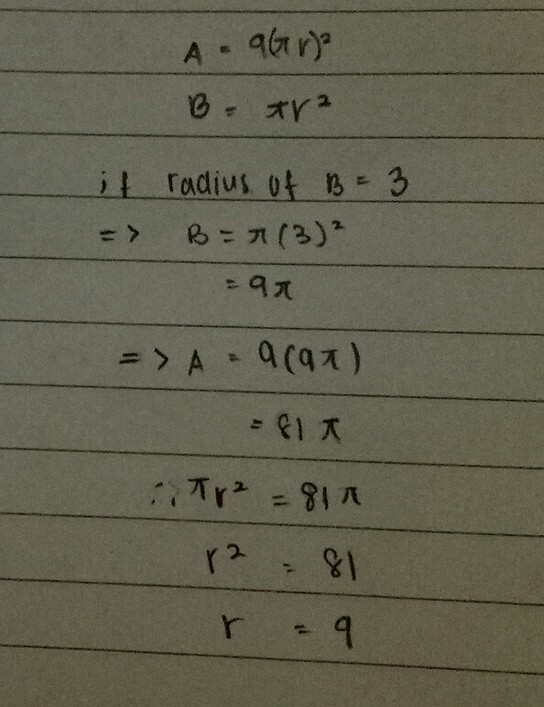 A = 9(πr)²
B = πr²
if radius of B = 3
=> B = π(3)²
= 9π
=> A = 9(9π)
= 81π
∴ πr² = 81π
r² = 81
r = 9